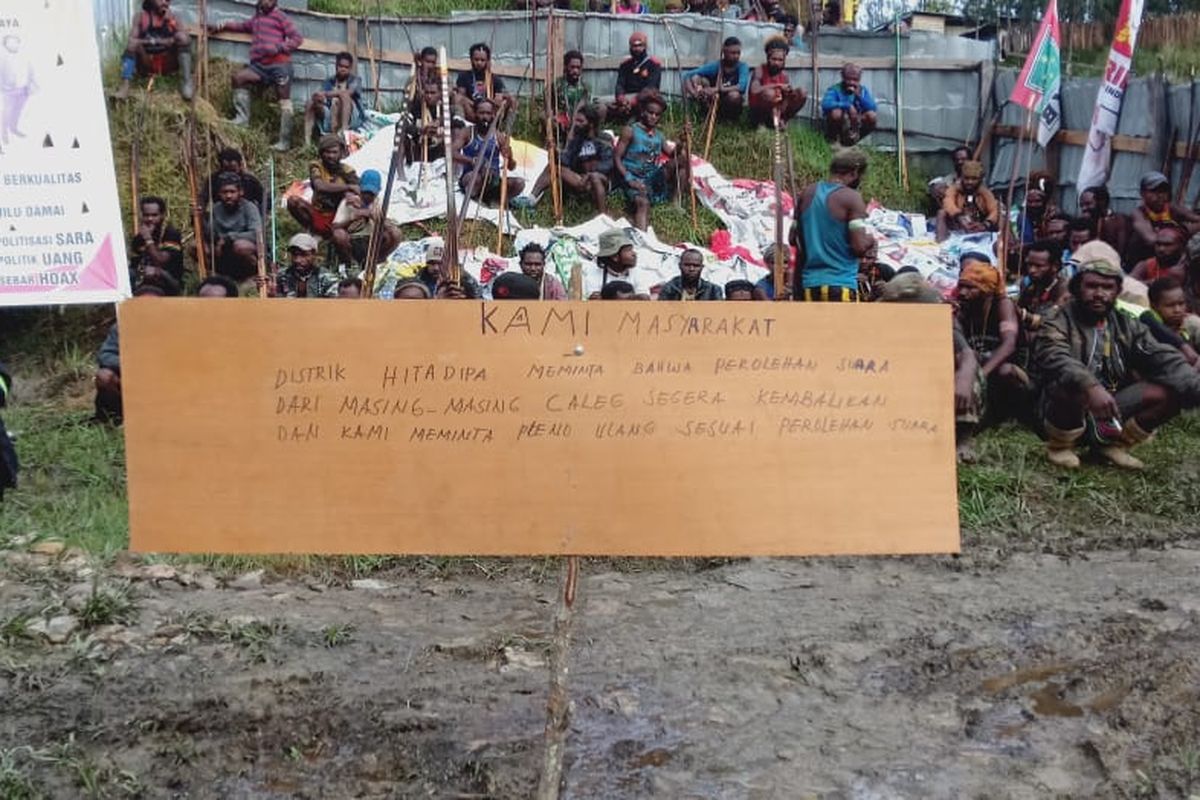 AYA
BERKUALITAS
ILU DAMAI
POLITISASI SARA
POLITIK UANG
SEBAR HOAX
KAMI MASYARAKAT
DISTRIK HITADIPA MEMINTA BAHWA PEROLEHAN SUARA
DARI MASING-MASING CALEG SEGERA KEMBALIKAN
DAN KAMI MEMINTA PLENO ULANG SESUAI PEROLEHAN SUARA